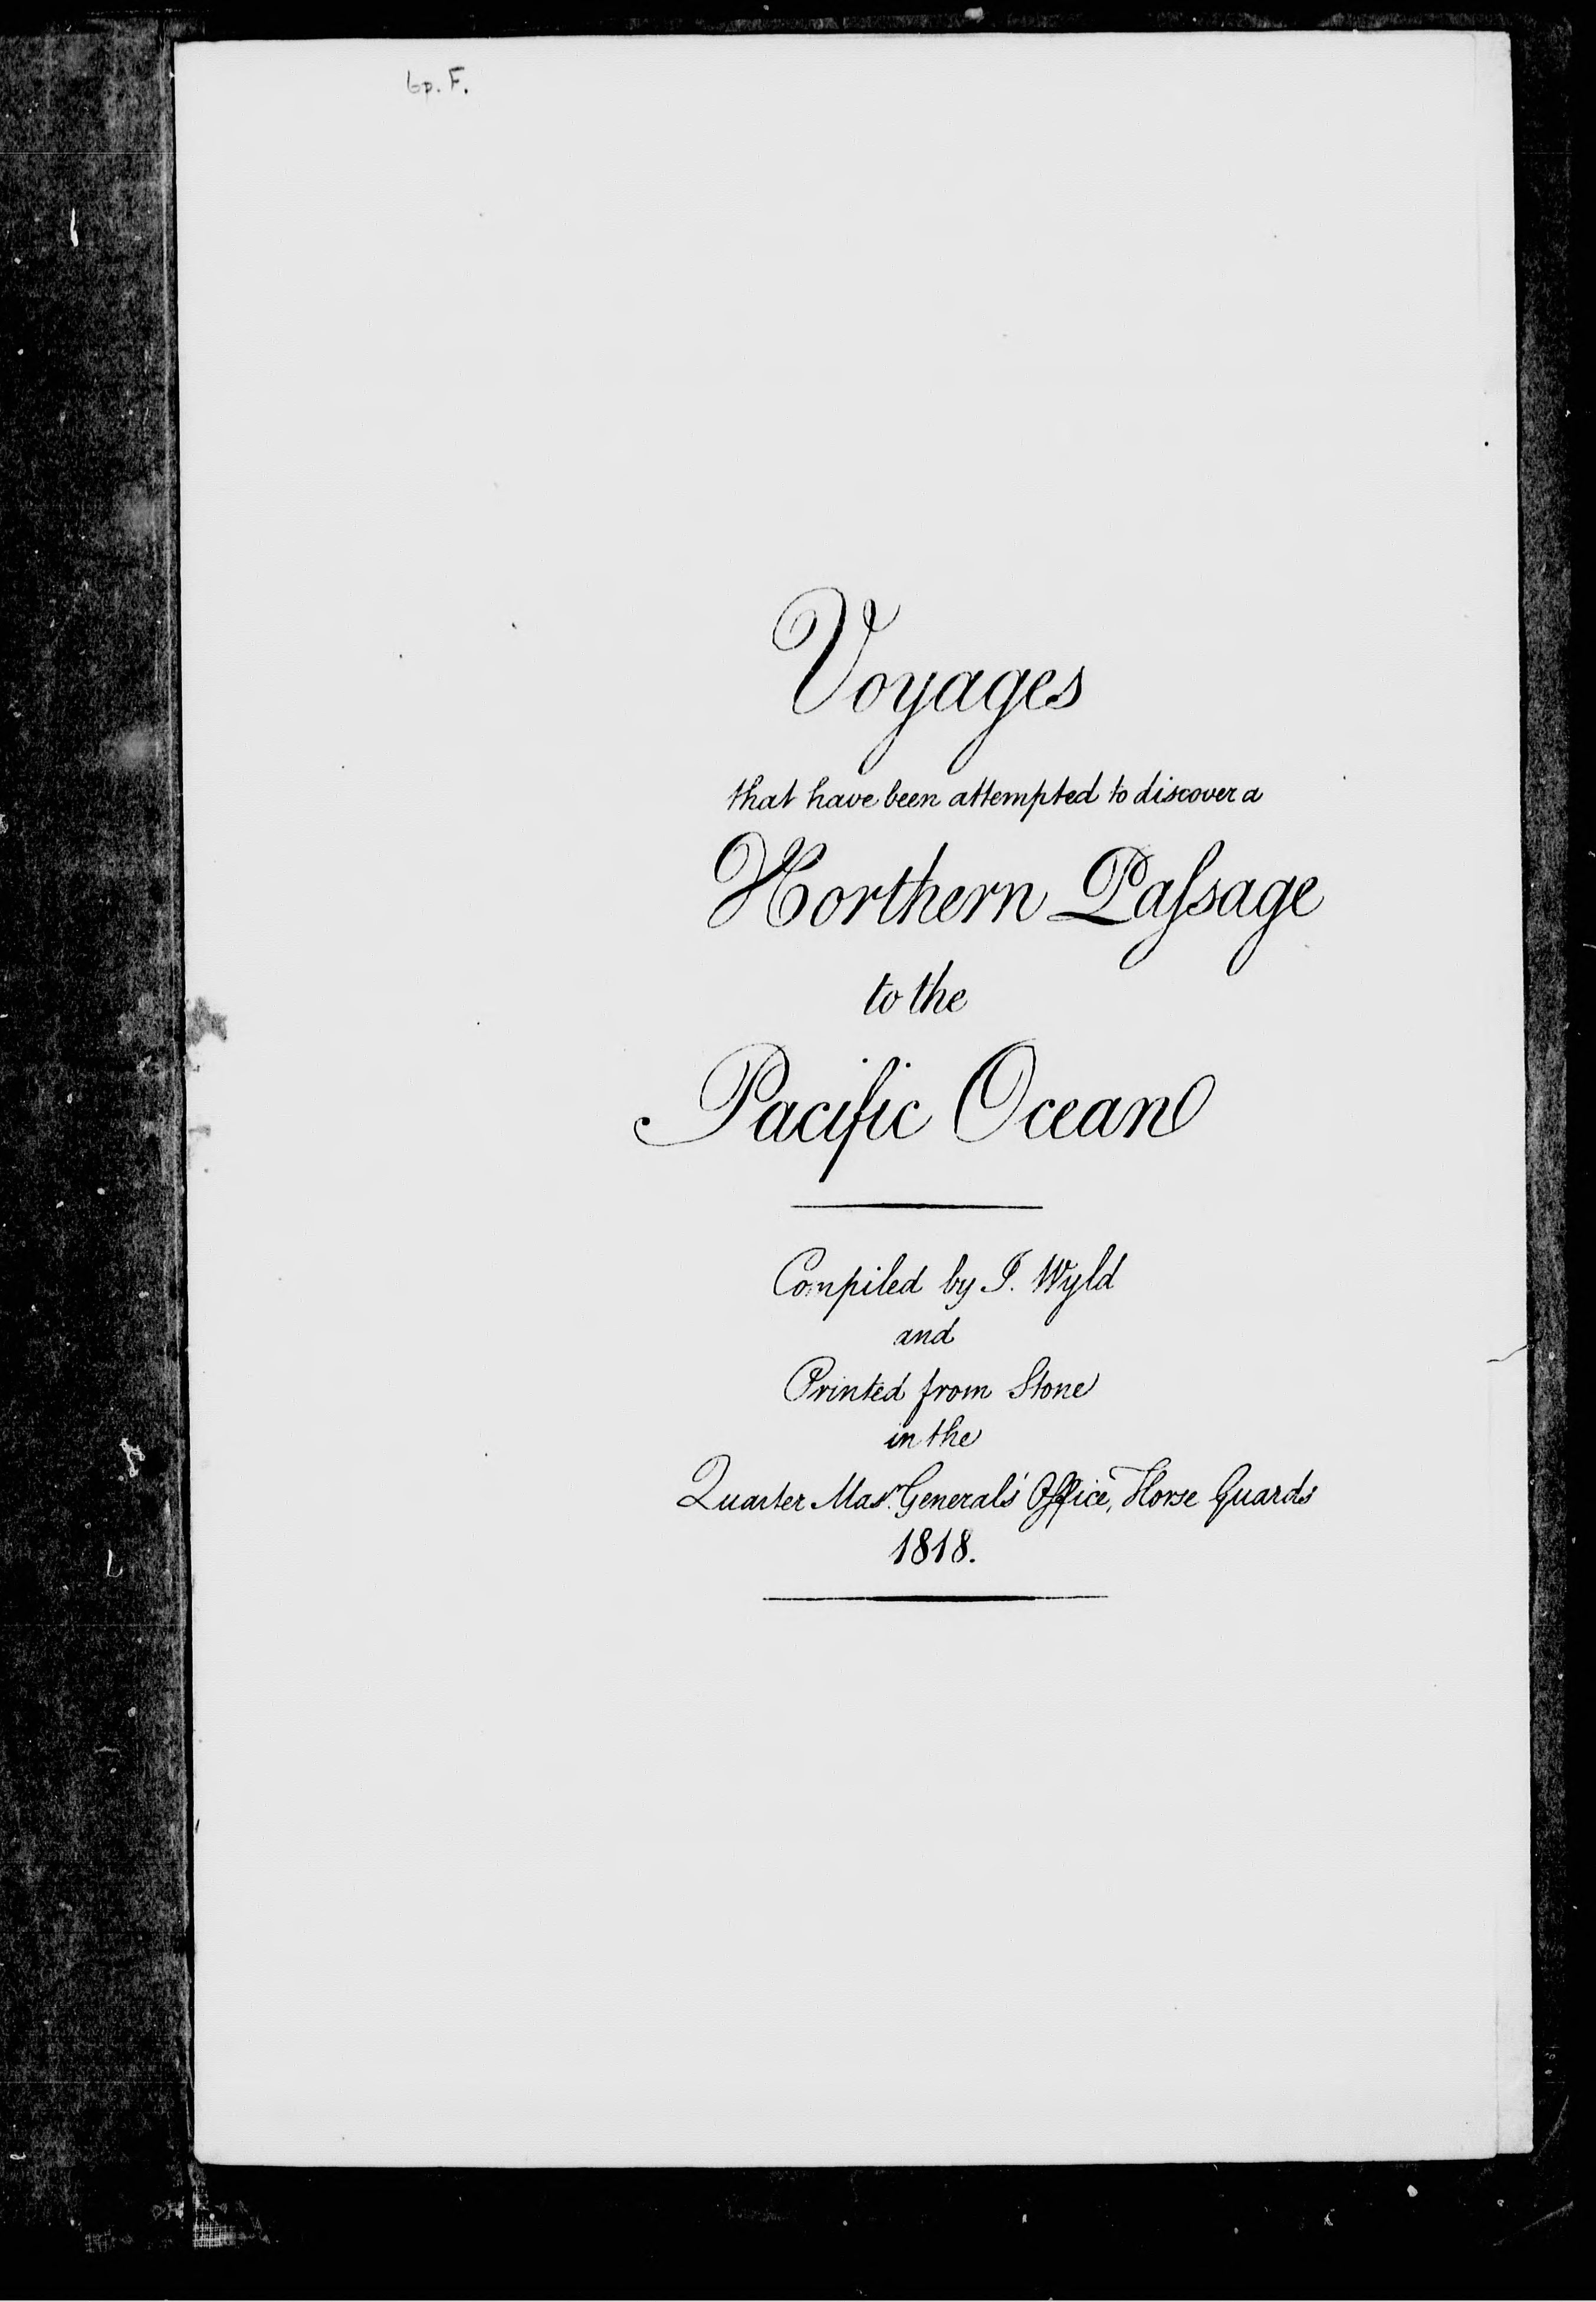 6p. F.
Voyages
that have been attempted to discover a
Northern Paſsage
to the
Pacific Ocean
Compiled by J. Wyld
and
Printed from Stone
in the
Quarter Masr. General's Office, Horse Guards
1818.